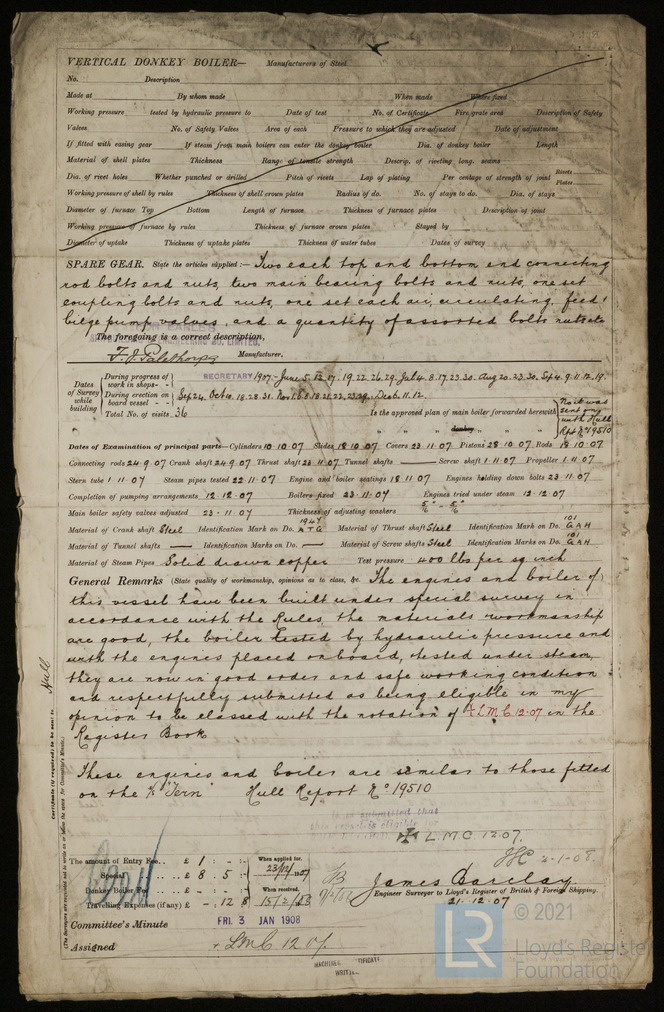 VERTICAL DONKEY BOILER— Manufacturers of Steel
No. Description
Made at By whom made When made Where fixed
Working pressure tested by hydraulic pressure to Date of test No. of Certificate Fire grate area Description of Safety
Valves No. of Safety Valves Area of each Pressure to which they are adjusted Date of adjustment
If fitted with easing gear If steam from main boilers can enter the donkey boiler Dia. of donkey boiler Length
Material of shell plates Thickness Range of tensile strength Descrip. of riveting long. seams
Dia. of rivet holes Whether punched or drilled Pitch of rivets Lap of plating Per centage of strength of joint Rivets Plates
Working pressure of shell by rules Thickness of shell crown plates Radius of do. No. of stays to do. Dia. of stays
Diameter of furnace Top Bottom Length of furnace Thickness of furnace plates Description of joint
Working pressure of furnace by rules Thickness of furnace crown plates Stayed by
Diameter of uptake Thickness of uptake plates Thickness of water tubes Dates of survey
SPARE GEAR. State the articles supplied:— Two each top and bottom end connecting
rod bolts and nuts, two main bearing bolts and nuts, one set
coupling bolts and nuts, one set each air, circulating, feed &
bilge pump valves, and a quantity of assorted bolts nuts etc
The foregoing is a correct description,
Manufacturer.
SECRETARY
Dates of Survey while building
During progress of work in shops- - 1907.- June 5. 12. 07. 19. 22. 26. 29. July 4. 8. 17. 23. 30. Aug 20. 23. 30. Sep 4. 9. 11. 12. 19.
During erection on board vessel - - Sep 24. Oct 10. 18. 28. 31. Nov 1. 6. 8. 18. 21. 22. 23. 29. Dec 6. 11. 12.
Total No. of visits 36 Is the approved plan of main boiler forwarded herewith No it was sent with Hull Rpt No 19510
" " " donkey " " "
Dates of Examination of principal parts—Cylinders 10·10·07 Slides 18·10·07 Covers 23·11·07 Pistons 28·10·07 Rods 18·10·07
Connecting rods 24·9·07 Crank shaft 24·9·07 Thrust shaft 23·11·07 Tunnel shafts — Screw shaft 1·11·07 Propeller 1·11·07
Stern tube 1·11·07 Steam pipes tested 22·11·07 Engine and boiler seatings 18·11·07 Engines holding down bolts 23·11·07
Completion of pumping arrangements 12·12·07 Boilers fixed 23·11·07 Engines tried under steam 12·12·07
Main boiler safety valves adjusted 23·11·07 Thickness of adjusting washers
Material of Crank shaft Steel Identification Mark on Do. Material of Thrust shaft Steel Identification Mark on Do. 101 GAH
Material of Tunnel shafts — Identification Marks on Do. — Material of Screw shafts Steel Identification Marks on Do. 101 GAH
Material of Steam Pipes Solid drawn copper Test pressure 400 lbs per sq inch
General Remarks (State quality of workmanship, opinions as to class, &c. The engines and boiler of
this vessel have been built under special survey in
accordance with the Rules, the materials & workmanship
are good, the boiler tested by hydraulic pressure and
with the engines placed onboard, tested under steam,
they are now in good order and safe working condition
and respectfully submitted as being eligible in my
opinion to be classed with the notation of + LMC 12·07 in the
Register Book
These engines and boiler are similar to those fitted
on the K "Tern" Hull Report No 19510
Certificate (if required) to be sent to Hull
(The Surveyors are requested not to write on or below the space for Committee's Minute.)
It is submitted that
this vessel is eligible for
L.M.C. 12.07.
3-1-08.
The amount of Entry Fee.. £ 1 : - : -
Special .. £ 8 : 5 :
Donkey Boiler Fee .. £ - : - :
Travelling Expenses (if any) £ - : 12 : 8
When applied for, 23/12/1907
When received, 15/2/08
James Barclay
Engineer Surveyor to Lloyd's Register of British & Foreign Shipping.
21·12·07
Committee's Minute FRI. 3 JAN 1908
Assigned + LMC 12.07
WRITTEN
LR
© 2021
Lloyd's Register
Foundation